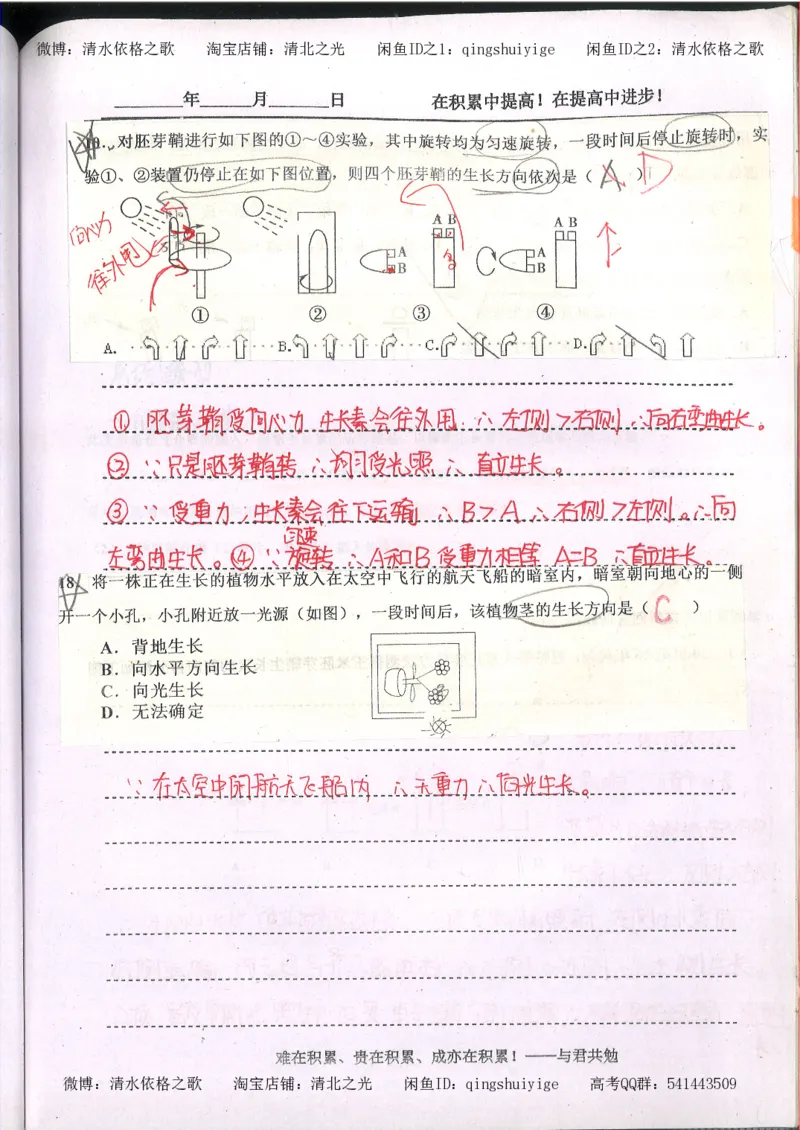 微博：清水依格之歌 淘宝店铺：清北之光 闲鱼ID之1：qingshuiyige 闲鱼ID之2：清水依格之歌
年 月 日 在积累中提高！在提高中进步！
对胚芽鞘进行如下图的①～④实验，其中旋转均为匀速旋转，一段时间后停止旋转时，实
验①、②装置仍停止在如下图位置，则四个胚芽鞘的生长方向依次是（ A D ）
向心力
往外甩
A B A B
A A
B B
① ② ③ ④
A. B. C. D.
① 胚芽鞘受向心力 生长素会往外甩 ∴左侧>右侧 ∴向右弯曲生长。
② ∵只是胚芽鞘转 ∴均匀受光照 ∴直立生长。
③ ∵受重力，生长素会往下运输 ∴B>A ∴右侧>左侧。∴向
匀速
左弯曲生长。④∵旋转 ∴A和B受重力相等 A=B ∴直立生长。
18. 将一株正在生长的植物水平放入在太空中飞行的航天飞船的暗室内，暗室朝向地心的一侧
开一个小孔，小孔附近放一光源（如图），一段时间后，该植物茎的生长方向是（ C ）
A. 背地生长
B. 向水平方向生长
C. 向光生长
D. 无法确定
∵在太空中闭航天飞船内 ∴无重力 ∴向光生长。
难在积累、贵在积累、成亦在积累！——与君共勉
微博：清水依格之歌 淘宝店铺：清北之光 闲鱼ID：qingshuiyige 高考QQ群：541443509